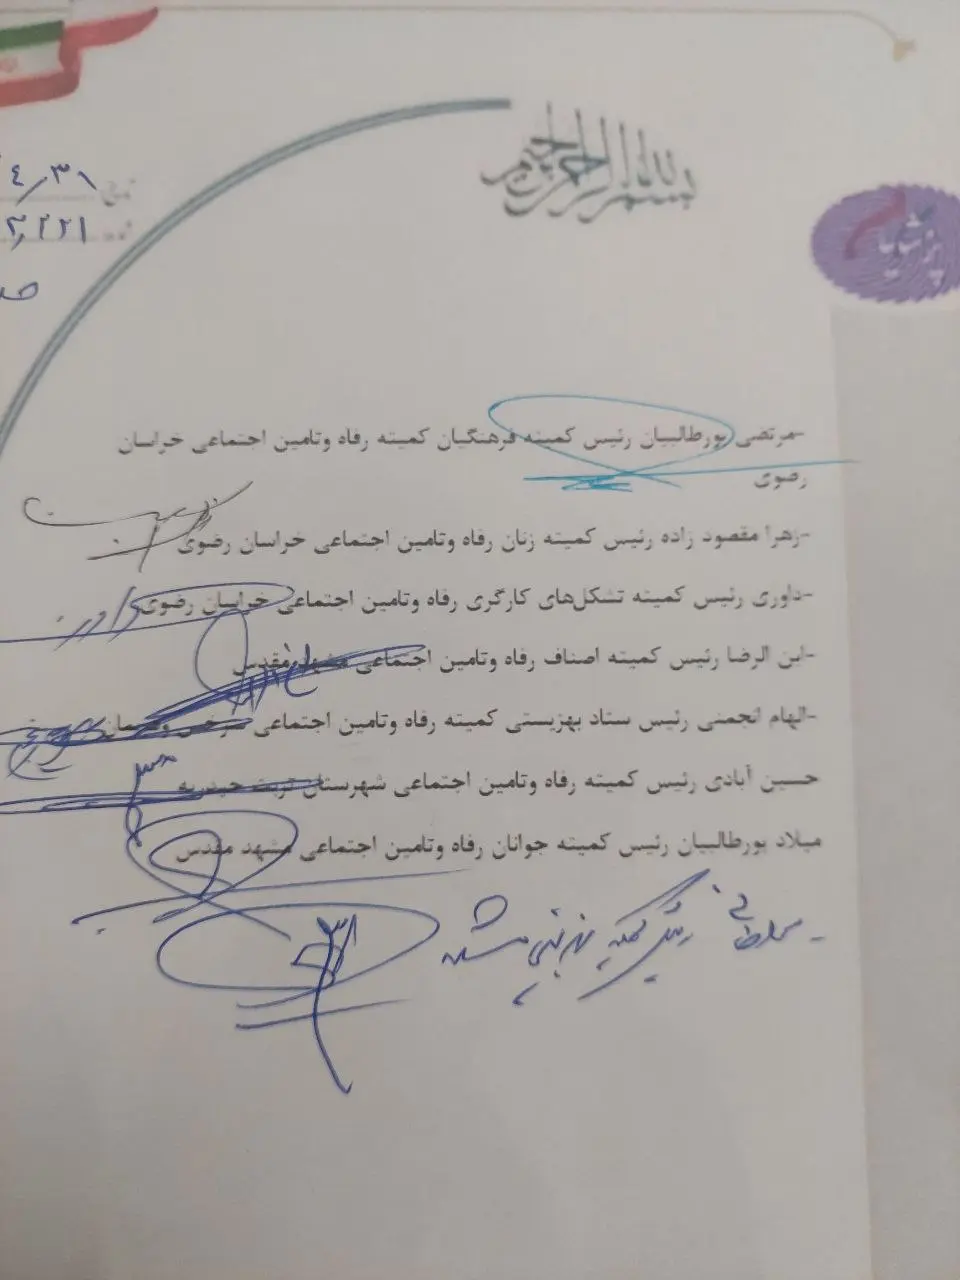 بسم الله الرحمن الرحیم
٤/٣١
٢٢١
-مرتضی پورطالبیان رئیس کمیته فرهنگیان کمیته رفاه وتامین اجتماعی خراسان
رضوی
-زهرا مقصود زاده رئیس کمیته زنان رفاه وتامین اجتماعی خراسان رضوی
-داوری رئیس کمیته تشکل‌های کارگری رفاه وتامین اجتماعی خراسان رضوی
-ابن الرضا رئیس کمیته اصناف رفاه وتامین اجتماعی مشهد مقدس
-الهام انجمنی رئیس ستاد بهزیستی کمیته رفاه وتامین اجتماعی سرخس و
حسین آبادی رئیس کمیته رفاه وتامین اجتماعی شهرستان تربت حیدریه
میلاد پورطالبیان رئیس کمیته جوانان رفاه وتامین اجتماعی مشهد مقدس
رئیس کمیته مشهد